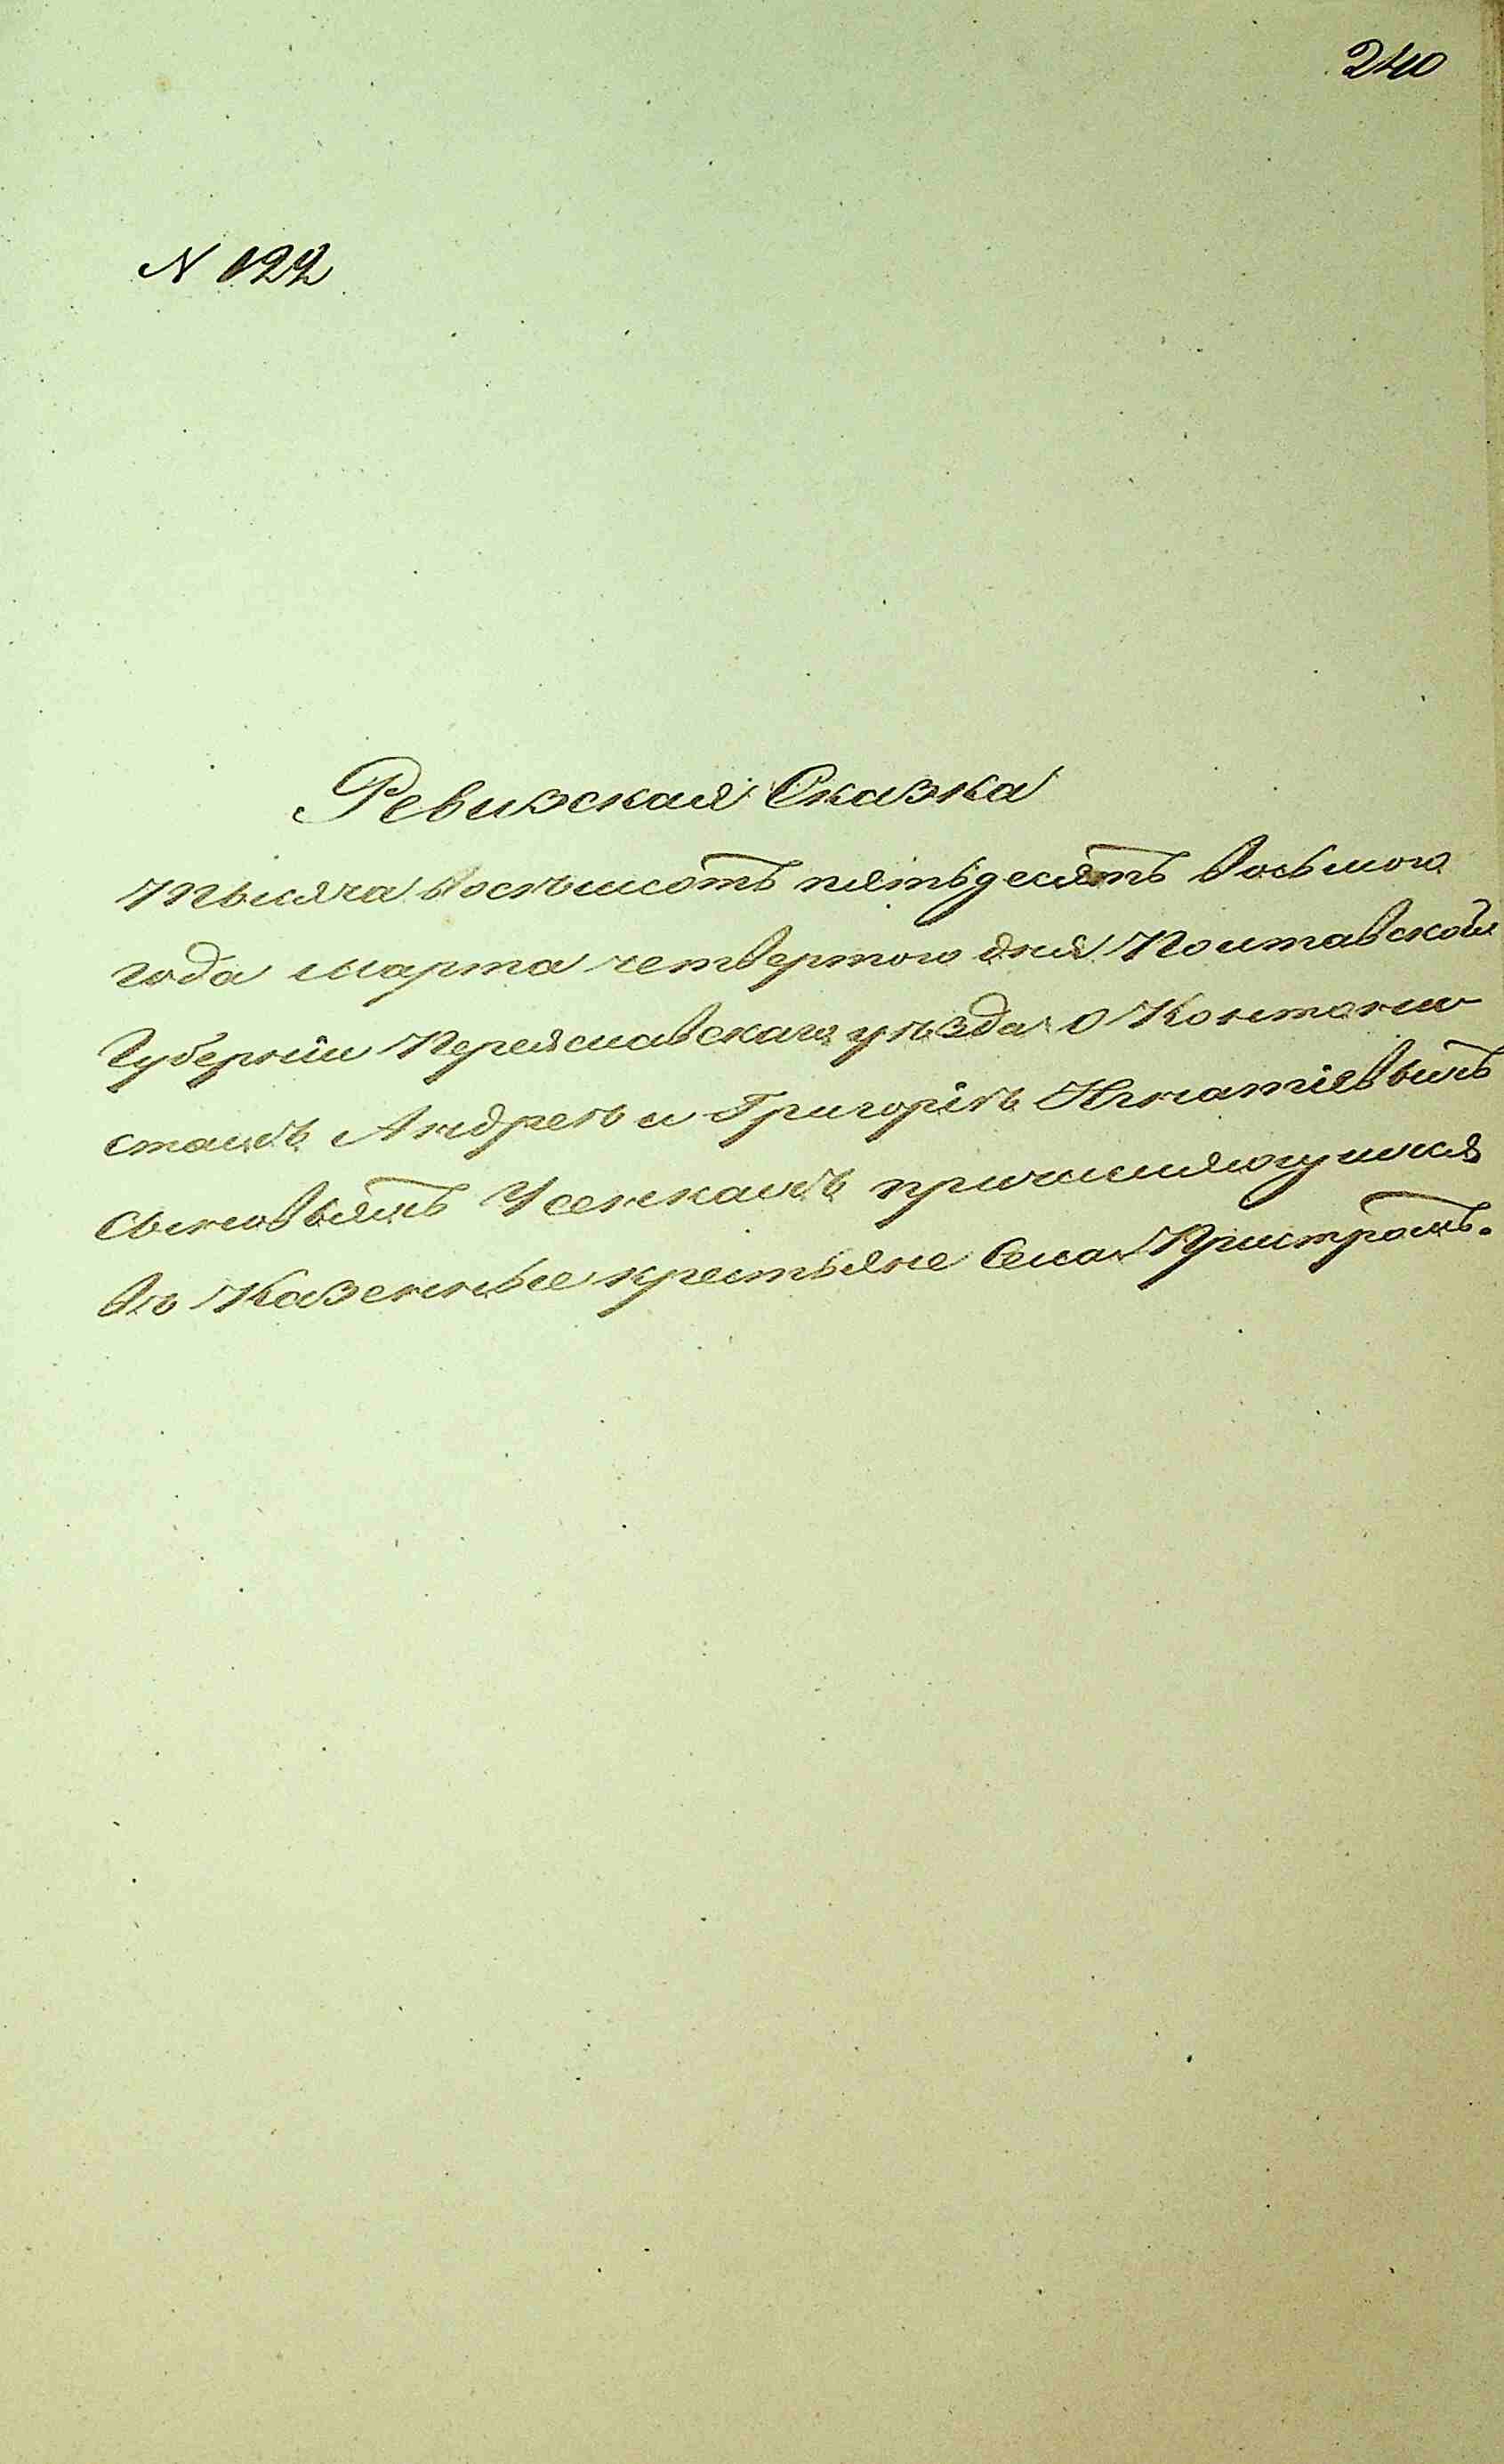 240
N 122
Ревизская Сказка
Тысяча восемьсотъ пятьдесятъ восьмого
года марта четвертого дня Полтавской
Губерніи Переяславскаго уѣзда о Константи
Андреѣ и Григоріѣ Игнатіевыхъ
сыновьяхъ Усенкахъ причисляющихся
въ Казенные крестьяне Села Пристромъ.